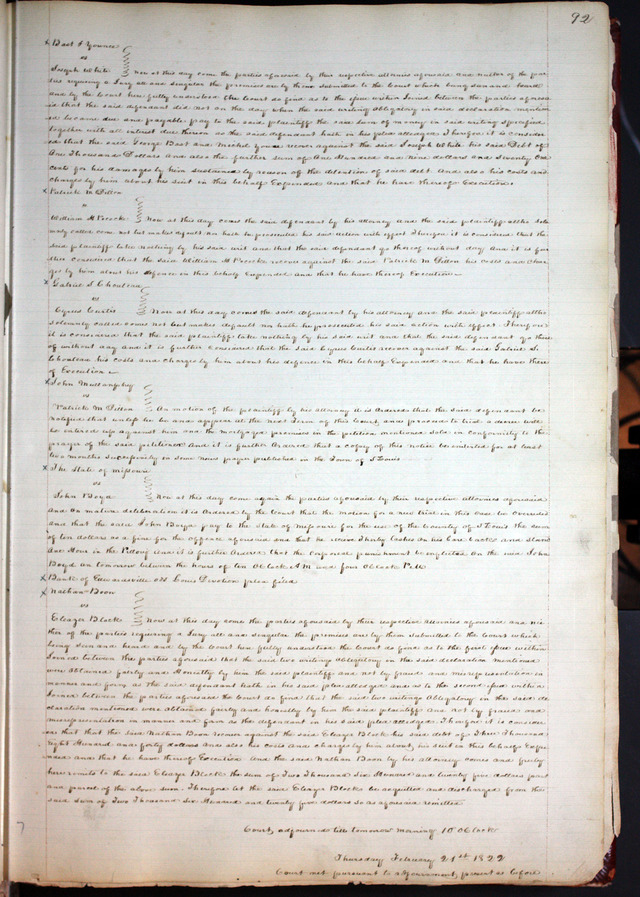 92
x Bast & Younee
vs
Joseph White Now at this day come the parties aforesaid by their respective attornies aforesaid and neither of the par
ties requiring a Jury all and singular the premises are by them submitted to the Court which being seen and heard
and by the Court here fully understood the Court do find as to the issue within Joined between the parties aforesa
id that the said defendant did not on the day when the said writing obligatory in said declaration mention
ed became due and payable pay to the said plaintiffs the said sum of money in said writing specified
together with all interest due thereon as the said defendant hath in his plea alledged Therefore it is consider
ed that the said George Bast and Michel Younee recover against the said Joseph White his said Debt of
One Thousand Dollars and also the further sum of One Hundred and nine dollars and Seventy
costs for his damages by him sustained by reason of the detention of said debt. And also his costs and
charges by him about his suit in this behalf Expended and that he have thereof Execution
x Patrick M. Dillon
vs
William H Brooke Now at this day comes the said defendant by his attorney and the said plaintiff altho sole
mnly called come not but makes default nor hath he prosecuted his said action with effect Therefore it is considered that the
said plaintiff take nothing by his said writ and that the said defendant go thereof without day And it is fur
ther considered that the said William H Brooke recover against the said Patrick M. Dillon his costs and char
ges by him about his defence in this behalf Expended and that he have thereof Execution
x Gabriel S. Chouteau
vs
Cyrus Curtis Now at this day comes the said defendant by his attorney and the said plaintiff altho
solemnly called comes not but makes default nor hath he prosecuted his said action with effect. Therefore
it is considered that the said plaintiff take nothing by his said writ and that the said defendant go there
of without day and it is further considered that the said Cyrus Curtis recover against the said Gabriel S.
Chouteau his costs and charges by him about his defence in this behalf Expended and that he have there
of Execution
x John Mullanphy
vs
Patrick M Dillon On motion of the plaintiff by his attorney it is Ordered that the said defendant be
notified that unless he be and appear at the next Term of this Court, and proceed to trial a decree will
be entered up against him and the mortgaged premises in the petition mentioned sold in conformity to the
prayer of the said petitioner And it is further Ordered that a copy of this notice be inserted for at least
two months successively in some news paper published in the Town of S. Louis
x The State of Missouri
vs
John Boyd Now at this day come again the parties aforesaid by their respective attornies aforesaid
And on mature deliberation it is Ordered by the Court that the motion for a new trial in this case be overruled
and that the said John Boyd pay to the State of Missouri for the use of the County of S Louis the sum
of ten dollars as a fine for the offence aforesaid and that he receive Thirty lashes on his bare back and stand
One Hour in the Pillory And it is further Ordered that the corporal punishment be inflicted on the said John
Boyd on tomorrow between the hours of ten Oclock A.M and four Oclock P.M.
x Bank of Edwardsville vs Louis Devotion plea filed
x Nathan Boon
vs
Eleazer Block Now at this day come the parties aforesaid by their respective attornies aforesaid and nei
ther of the parties requiring a Jury all and singular the premises are by them submitted to the Court which
being seen and heard and by the Court here fully understood the Court do find as to the first issue within
Joined between the parties aforesaid that the said two writings obligatory in the said declaration mentioned
were obtained fairly and honestly by him the said plaintiff and not by fraud and misrepresentation in
manner and form as the said defendant hath in his said plea alledged and as to the second issue within
Joined between the parties aforesaid the Court do find that the said two writings Obligatory in the said de
claration mentioned were obtained fairly and honestly by him the said plaintiff and not by fraud and
misrepresentation in manner and form as the defendant in his said plea alledged. Therefore it is consider
ed that the said Nathan Boon recover against the said Eleazer Block his said debt of Three Thousand
eight Hundred and forty dollars and also his costs and charges by him about his suit in this behalf Expe
nded and that he have thereof Execution And the said Nathan Boon by his attorney comes and freely
here remits to the said Eleazer Block the sum of Two Thousand Six Hundred and twenty five dollars part
and parcel of the above sum. Therefore let the said Eleazer Block be acquitted and discharged from the
said sum of Two Thousand Six Hundred and twenty five dollars so as aforesaid remitted
Court adjourned till tomorrow morning 10 Oclock
Thursday February 21st 1822
Court met pursuant to adjournment, present as before